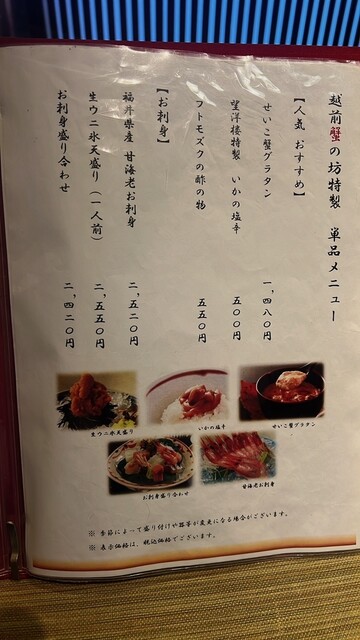 越前蟹の坊特製 単品メニュー
【人気 おすすめ】
せいこ蟹グラタン 一,四八〇円
望洋楼特製 いかの塩辛 五〇〇円
フトモズクの酢の物 五五〇円
【お刺身】
福井県産 甘海老お刺身 二,五二〇円
生ウニ氷天盛り(一人前) 二,五五〇円
お刺身盛り合わせ 二,四二〇円
生ウニ氷天盛り
いかの塩辛
せいこ蟹グラタン
お刺身盛り合わせ
甘海老お刺身
※ 季節によって盛り付けや器等が変更になる場合がございます。
※ 表示価格は、税込価格でございます。